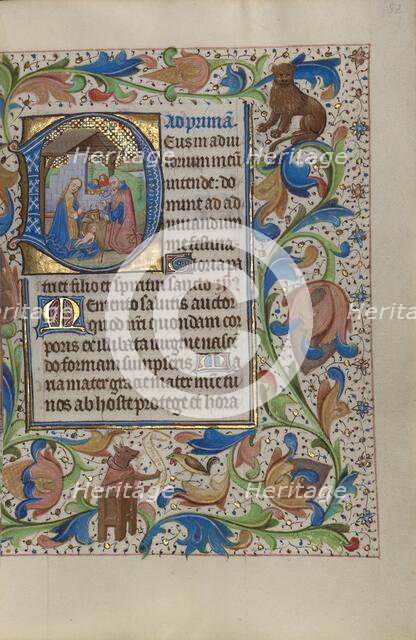 82
Ad primā
Deus in adiu
torium meū
intende: do
mine ad ad
iuuandum
me festina
Gloria pa
tri et filio et spiritui sancto
Memento salutis auctor
quod nr̄i quondam cor
poris ex illibata uirgine nasce
do formam sumpseris Ma
ria mater gracie mater mie tu
nos ab hoste protege et hora
Heritage
Heritage
Heritage
Heritage
Heritage
Heritage
Heritage
Heritage